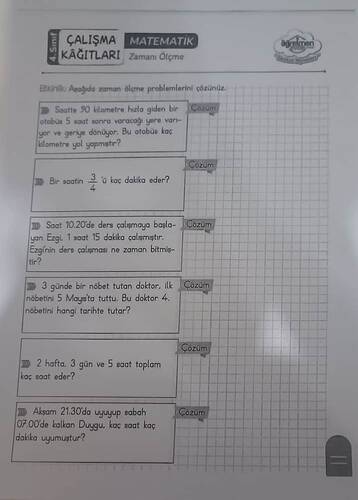 4. Sınıf
ÇALIŞMA
KÂĞITLARI
MATEMATİK
Zamanı Ölçme
öğretmen
Etkinlik: Aşağıda zaman ölçme problemlerini çözünüz.
Saatte 90 kilometre hızla giden bir
otobüs 5 saat sonra varacağı yere varı-
yor ve geriye dönüyor. Bu otobüs kaç
kilometre yol yapmıştır?
Çözüm
Bir saatin 3/4 'ü kaç dakika eder?
Çözüm
Saat 10.20'de ders çalışmaya başla-
yan Ezgi, 1 saat 15 dakika çalışmıştır.
Ezgi'nin ders çalışması ne zaman bitmiş-
tir?
Çözüm
3 günde bir nöbet tutan doktor, ilk
nöbetini 5 Mayıs'ta tuttu. Bu doktor 4.
nöbetini hangi tarihte tutar?
Çözüm
2 hafta, 3 gün ve 5 saat toplam
kaç saat eder?
Çözüm
Akşam 21.30'da uyuyup sabah
07.00'de kalkan Duygu, kaç saat kaç
dakika uyumuştur?
Çözüm